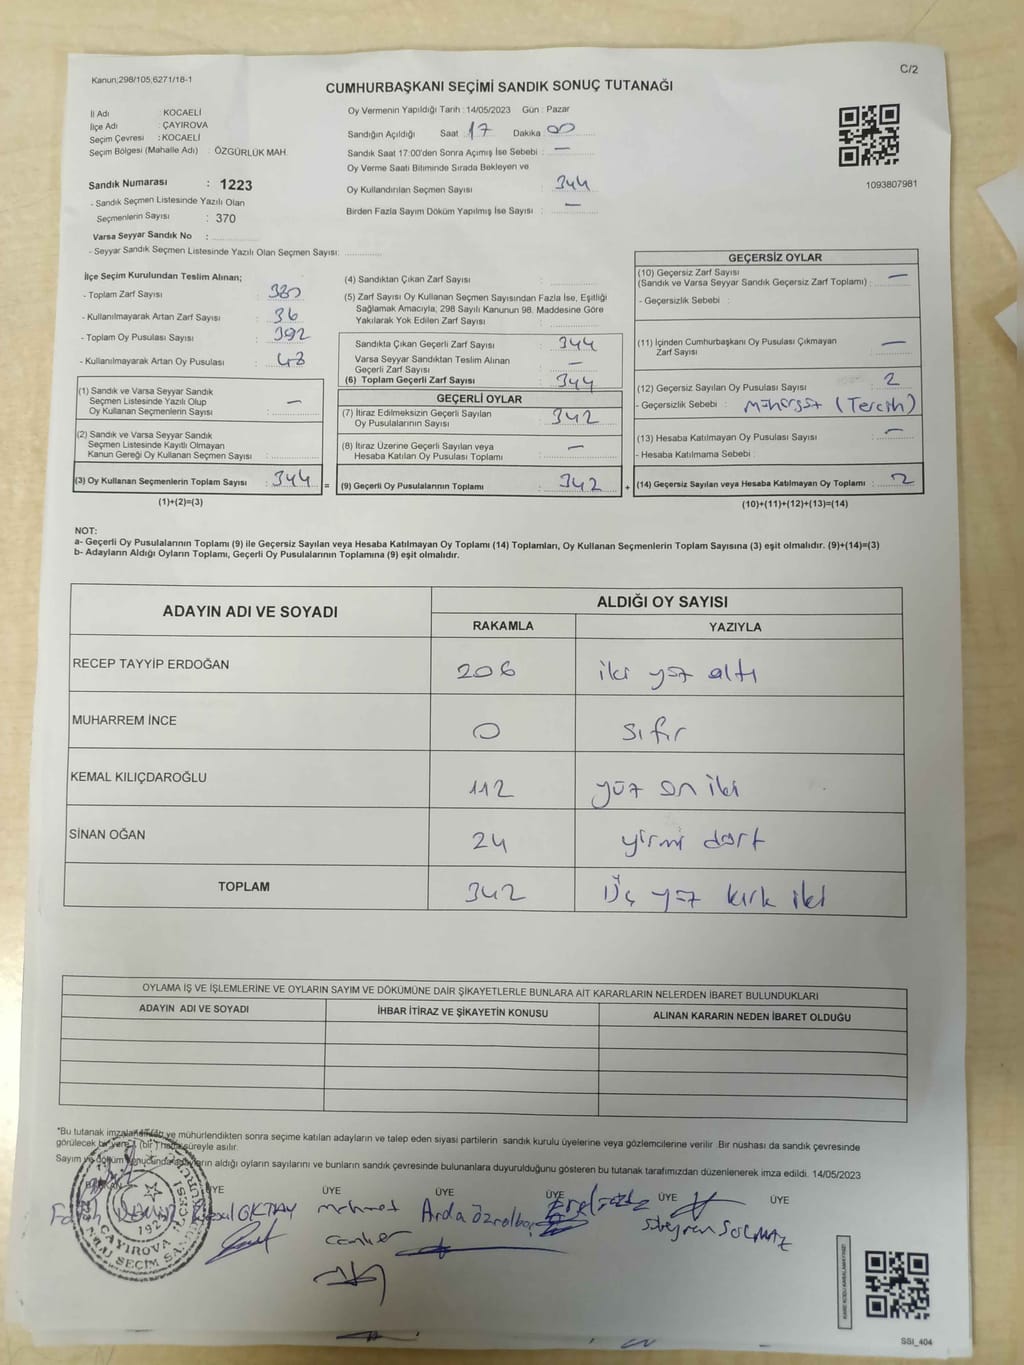 Kanun;298/105,6271/18-1
C/2
CUMHURBAŞKANI SEÇİMİ SANDIK SONUÇ TUTANAĞI
İl Adı KOCAELİ
İlçe Adı : ÇAYIROVA
Seçim Çevresi : KOCAELİ
Seçim Bölgesi (Mahalle Adı) : ÖZGÜRLÜK MAH.
Sandık Numarası : 1223
- Sandık Seçmen Listesinde Yazılı Olan
Seçmenlerin Sayısı : 370
Varsa Seyyar Sandık No :
- Seyyar Sandık Seçmen Listesinde Yazılı Olan Seçmen Sayısı:
Oy Vermenin Yapıldığı Tarih : 14/05/2023 Gün : Pazar
Sandığın Açıldığı Saat 17 Dakika 00
Sandık Saat 17:00'den Sonra Açımış İse Sebebi : —
Oy Verme Saati Bitiminde Sırada Bekleyen ve
Oy Kullandırılan Seçmen Sayısı : 344
Birden Fazla Sayım Döküm Yapılmış İse Sayısı : —
1093807981
İlçe Seçim Kurulundan Teslim Alınan;
- Toplam Zarf Sayısı : 380
- Kullanılmayarak Artan Zarf Sayısı : 36
- Toplam Oy Pusulası Sayısı : 392
- Kullanılmayarak Artan Oy Pusulası : 48
(1) Sandık ve Varsa Seyyar Sandık
Seçmen Listesinde Yazılı Olup
Oy Kullanan Seçmenlerin Sayısı : —
(2) Sandık ve Varsa Seyyar Sandık
Seçmen Listesinde Kayıtlı Olmayan
Kanun Gereği Oy Kullanan Seçmen Sayısı :
(3) Oy Kullanan Seçmenlerin Toplam Sayısı : 344 =
(1)+(2)=(3)
(4) Sandıktan Çıkan Zarf Sayısı :
(5) Zarf Sayısı Oy Kullanan Seçmen Sayısından Fazla İse, Eşitliği
Sağlamak Amacıyla; 298 Sayılı Kanunun 98. Maddesine Göre
Yakılarak Yok Edilen Zarf Sayısı :
Sandıkta Çıkan Geçerli Zarf Sayısı : 344
Varsa Seyyar Sandıktan Teslim Alınan
Geçerli Zarf Sayısı : —
(6) Toplam Geçerli Zarf Sayısı : 344
GEÇERLİ OYLAR
(7) İtiraz Edilmeksizin Geçerli Sayılan
Oy Pusulalarının Sayısı : 342
(8) İtiraz Üzerine Geçerli Sayılan veya
Hesaba Katılan Oy Pusulası Toplamı : —
(9) Geçerli Oy Pusulalarının Toplamı : 342 +
GEÇERSİZ OYLAR
(10) Geçersiz Zarf Sayısı
(Sandık ve Varsa Seyyar Sandık Geçersiz Zarf Toplamı) : —
- Geçersizlik Sebebi :
(11) İçinden Cumhurbaşkanı Oy Pusulası Çıkmayan
Zarf Sayısı : —
(12) Geçersiz Sayılan Oy Pusulası Sayısı : 2
- Geçersizlik Sebebi : (Tercih)
(13) Hesaba Katılmayan Oy Pusulası Sayısı : —
- Hesaba Katılmama Sebebi :
(14) Geçersiz Sayılan veya Hesaba Katılmayan Oy Toplamı : 2
(10)+(11)+(12)+(13)=(14)
NOT:
a- Geçerli Oy Pusulalarının Toplamı (9) ile Geçersiz Sayılan veya Hesaba Katılmayan Oy Toplamı (14) Toplamları, Oy Kullanan Seçmenlerin Toplam Sayısına (3) eşit olmalıdır. (9)+(14)=(3)
b- Adayların Aldığı Oyların Toplamı, Geçerli Oy Pusulalarının Toplamına (9) eşit olmalıdır.
ADAYIN ADI VE SOYADI ALDIĞI OY SAYISI
RAKAMLA YAZIYLA
RECEP TAYYİP ERDOĞAN 206 iki yüz altı
MUHARREM İNCE 0 sıfır
KEMAL KILIÇDAROĞLU 112 yüz on iki
SİNAN OĞAN 24 yirmi dört
TOPLAM 342 Üç yüz kırk iki
OYLAMA İŞ VE İŞLEMLERİNE VE OYLARIN SAYIM VE DÖKÜMÜNE DAİR ŞİKAYETLERLE BUNLARA AİT KARARLARIN NELERDEN İBARET BULUNDUKLARI
ADAYIN ADI VE SOYADI İHBAR İTİRAZ VE ŞİKAYETİN KONUSU ALINAN KARARIN NEDEN İBARET OLDUĞU
*Bu tutanak imzalandıktan ve mühürlendikten sonra seçime katılan adayların ve talep eden siyasi partilerin sandık kurulu üyelerine veya gözlemcilerine verilir. Bir nüshası da sandık çevresinde
görülecek bir yere 1 (bir) hafta süreyle asılır.
Sayım ve döküm sonucunda adayların aldığı oyların sayılarını ve bunların sandık çevresinde bulunanlara duyurulduğunu gösteren bu tutanak tarafımızdan düzenlenerek imza edildi. 14/05/2023
BAŞKAN ÜYE ÜYE ÜYE ÜYE ÜYE ÜYE
OKTAY Mehmet Arda Süleyman SOLMAZ
ÇAYIROVA İLÇESİ
SSI_404